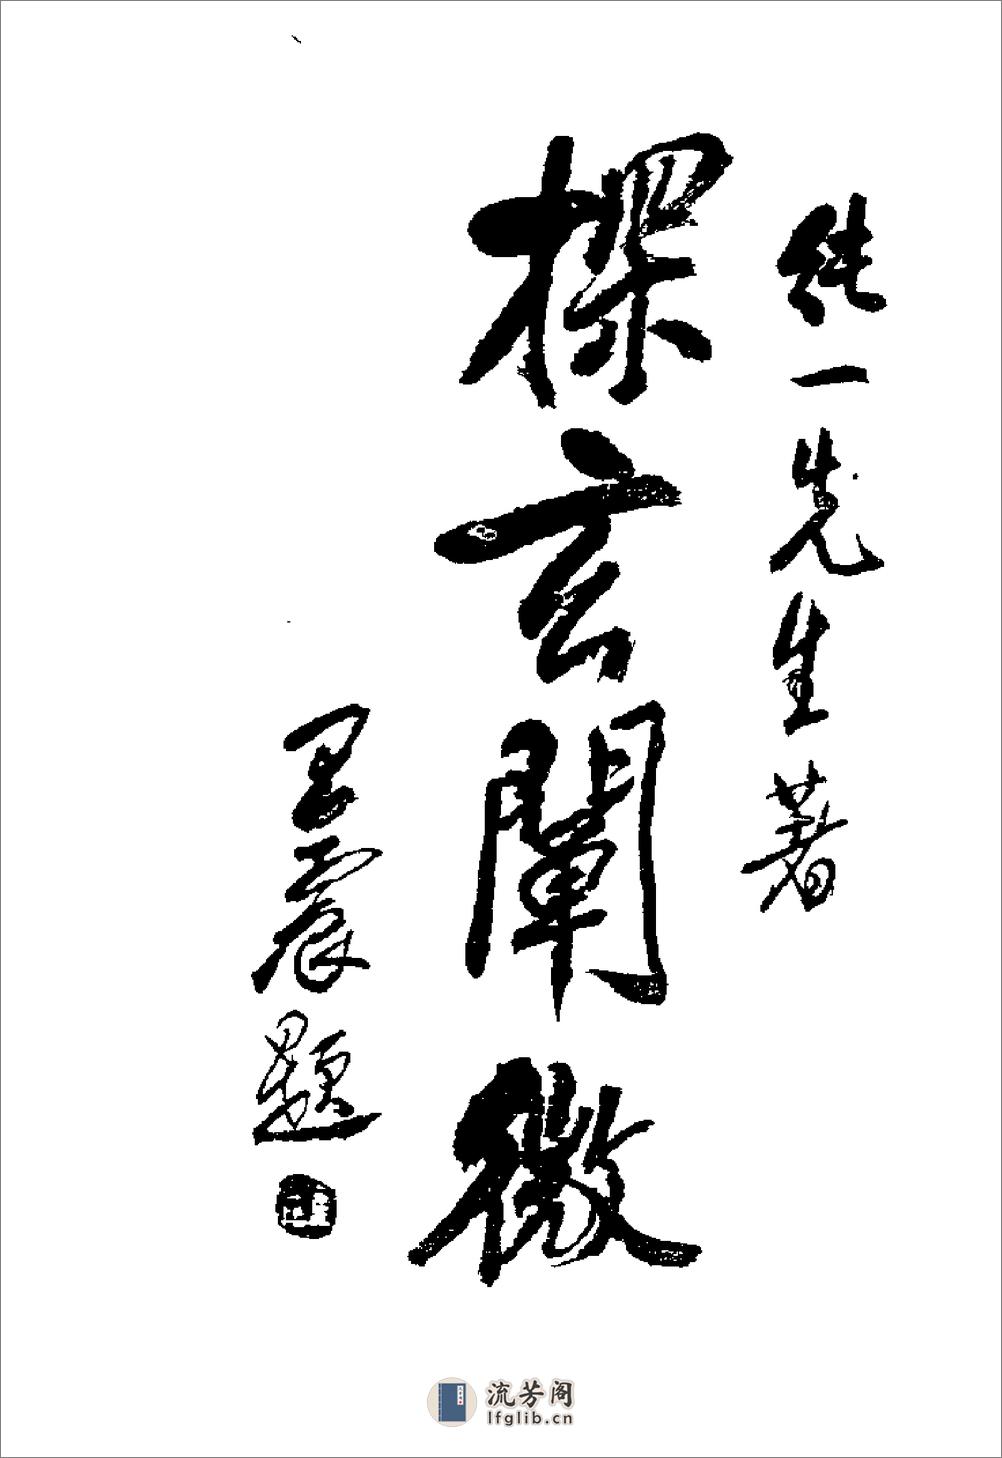 純一先生著
探玄闡微
題
流芳阁
lfglib.cn